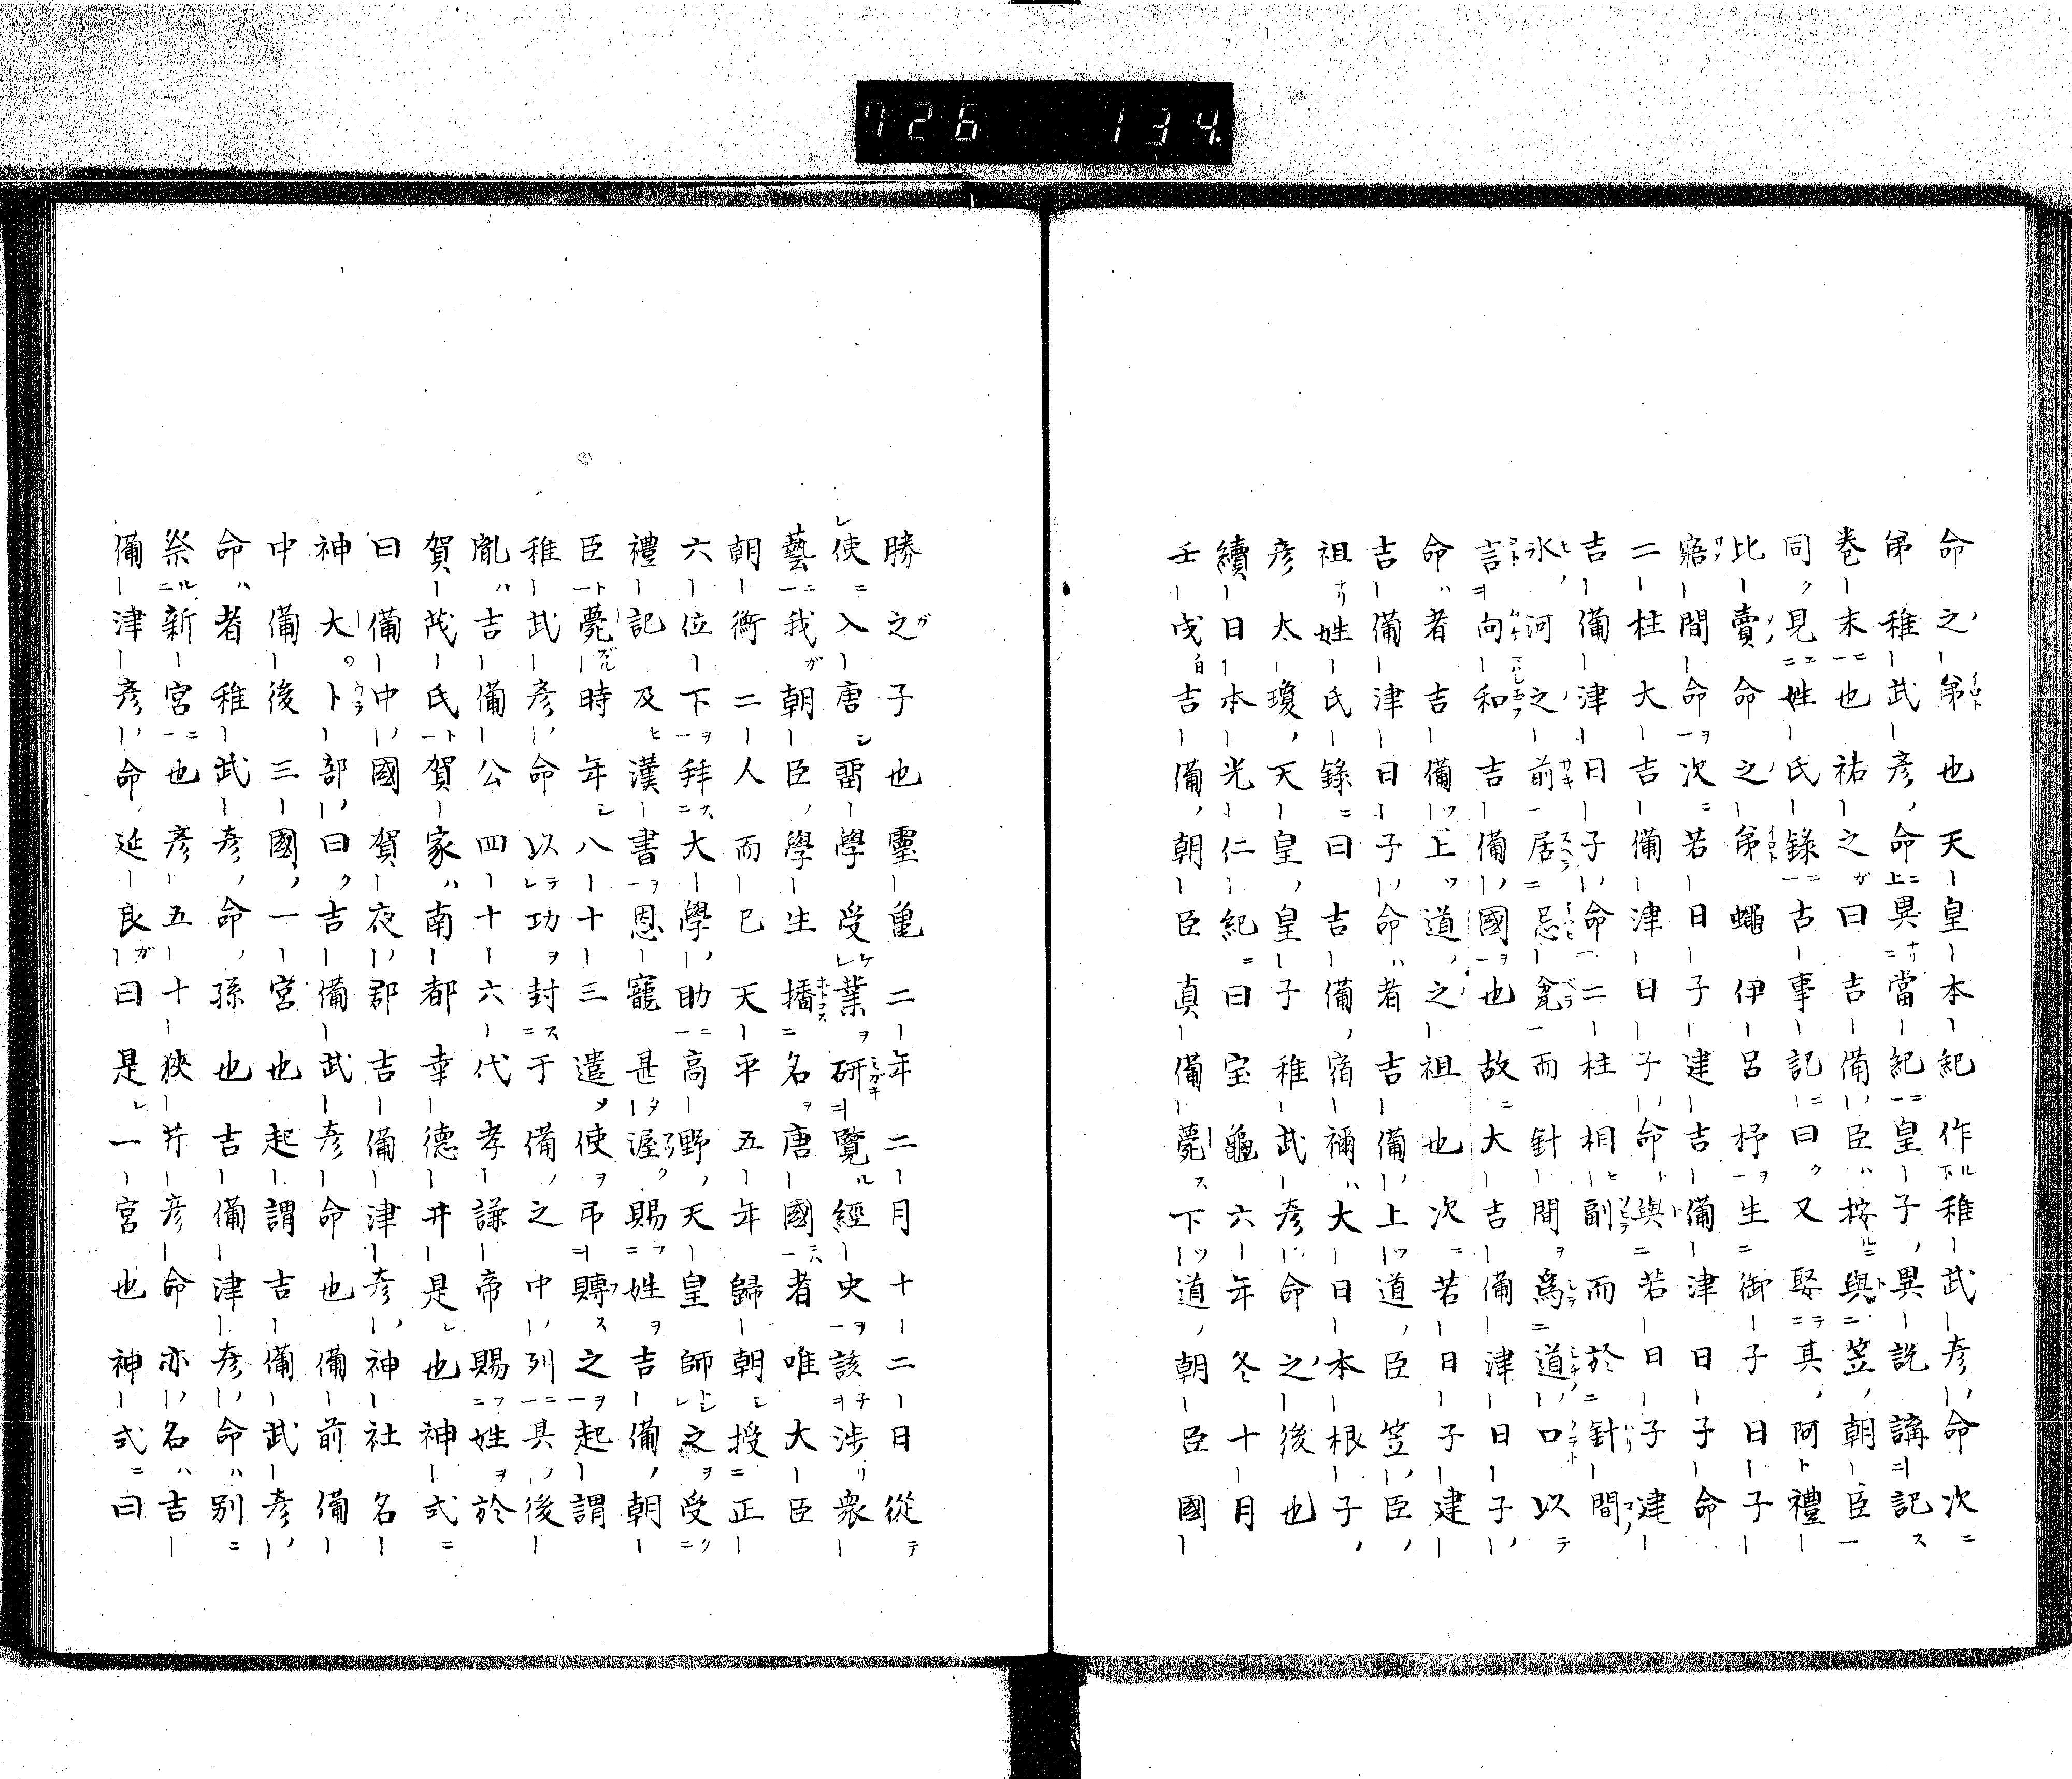 726 134.
命之弟也天皇本紀作稚武彦命次
弟稚武彦命異當紀皇子異說講記
巻末也祐之曰吉備臣按與笠朝臣
同見姓氏錄古事記曰又娶其阿禮
比賣命之弟蠅伊呂杼生御子日子
寤間命次若日子建吉備津日子命
二柱大吉備津日子命與若日子建
吉備津日子命二柱相副而於針間
氷河之前居忌瓮而針間爲道口以
言向和吉備國也故大吉備津日子
命者吉備上道之祖也次若日子建
吉備津日子命者吉備上道臣笠臣
祖姓氏錄曰吉備宿禰大日本根子
彦太瓊天皇皇子稚武彦命之後也
續日本光仁紀曰宝龜六年冬十月
壬戌吉備朝臣真備薨下道朝臣國
勝之子也靈亀二年二月十二日從
使入唐畱學受業研覽經史該涉衆
藝我朝臣學生播名唐國者唯大臣
朝衡二人而已天平五年歸朝授正
六位下拜大學助高野天皇師之受
禮記及漢書恩寵甚渥賜姓吉備朝
臣薨時年八十三遣使弔賻之起謂
稚武彦命以功封于備之中列其後
胤吉備公四十六代孝謙帝賜姓於
賀茂氏賀家南都幸德井是也神式
曰備中國賀夜郡吉備津彦神社名
神大卜部曰吉備武彦命也備前備
中備後三國一宮也起謂吉備武彦
命者稚武彦命孫也吉備津彦命別
祭新宮也彦五十狹芹彦命亦名吉
備津彦命延良曰是一宮也神式曰